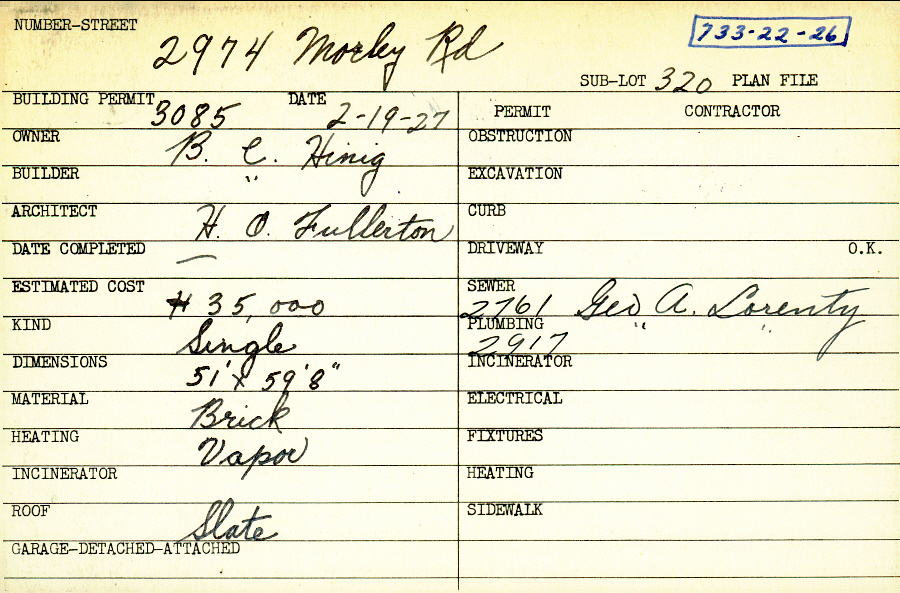 NUMBER-STREET
2974 Morley Rd
733-22-26
SUB-LOT 320 PLAN FILE
BUILDING PERMIT 3085 DATE 2-19-27
PERMIT CONTRACTOR
OWNER B. C. Hinig
OBSTRUCTION
BUILDER "
EXCAVATION
ARCHITECT H. O. Fullerton
CURB
DATE COMPLETED —
DRIVEWAY O.K.
ESTIMATED COST # 35,000
SEWER 2761 Geo A. Lorenty
KIND Single
PLUMBING 2917 " "
DIMENSIONS 51' x 59'8"
INCINERATOR
MATERIAL Brick
ELECTRICAL
HEATING Vapor
FIXTURES
INCINERATOR
HEATING
ROOF Slate
SIDEWALK
GARAGE-DETACHED-ATTACHED